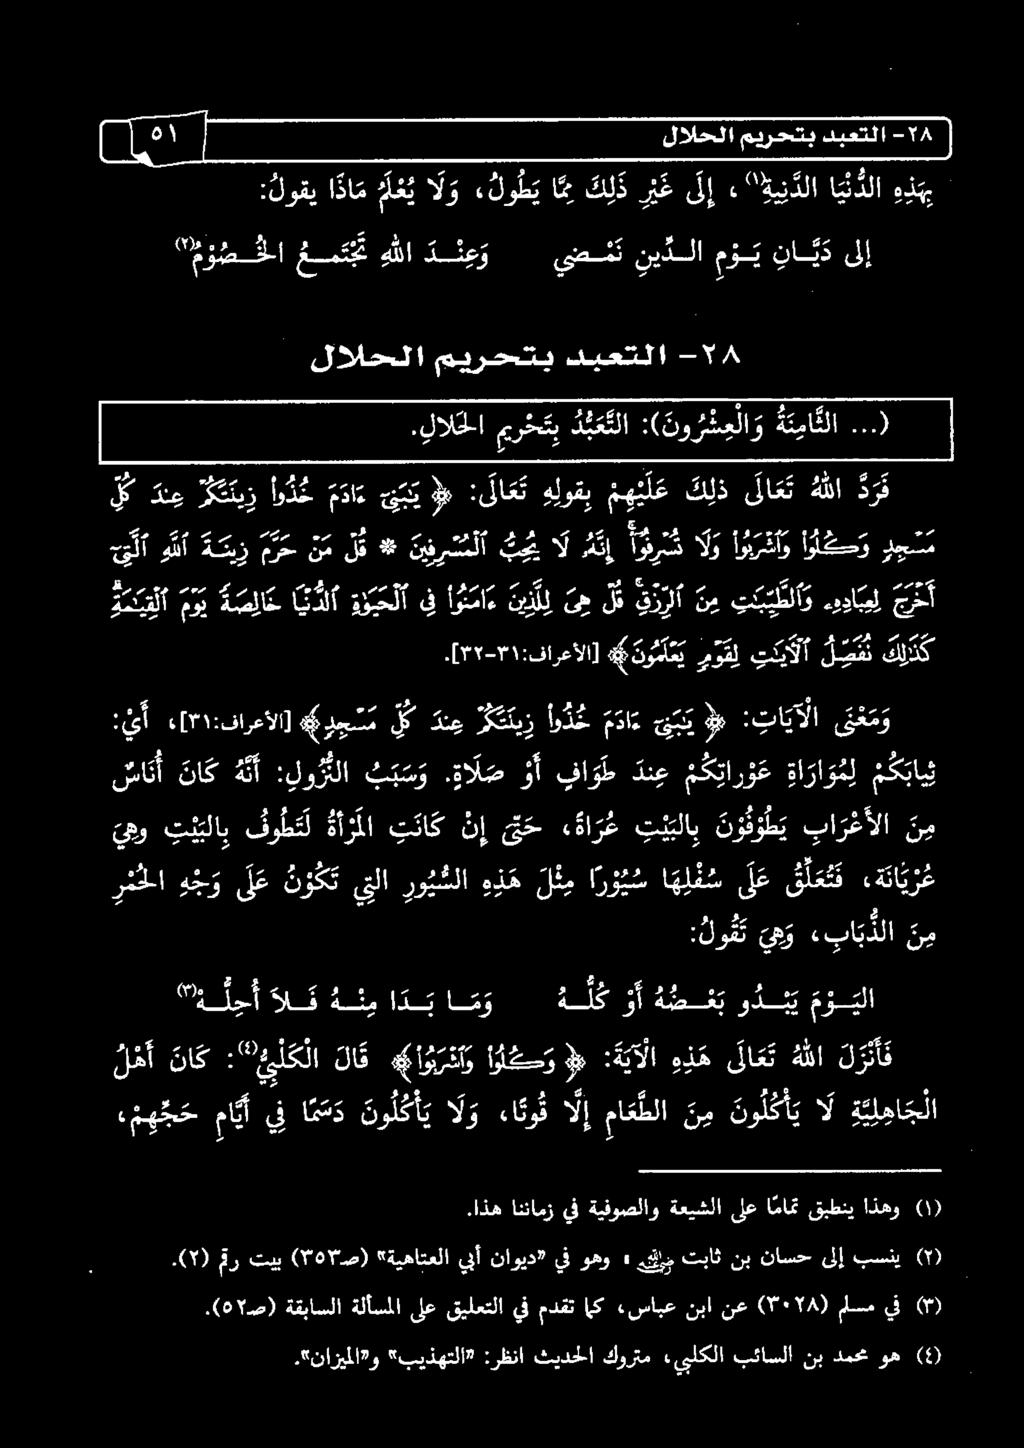 ٢٨- التعبد بتحريم الحلال
٥١
بِهَذِهِ الدُّنْيَا الدَّنِيةِ(١)، إِلَى غَيْرِ ذَلِكَ مِمَّا يَطُولُ، وَلَا يُعْلَمُ مَاذَا يقولُ:
إلى دَيَّـانِ يَـوْمِ الـدِّينِ نَمْـضي وَعِنْـدَ اللهِ تَجْتَمـعُ الخُـصُومُ(٢)
٢٨- التعبد بتحريم الحلال
(... الثَّامِنَةُ وَالْعِشْرُونَ): التَّعَبُّدُ بِتَحْرِيمِ الحَلَالِ.
فَرَدَّ اللهُ تَعَالَى ذلِكَ عَلَيْهِمْ بِقولِهِ تَعَالَى: ﴿يَٰبَنِىٓ ءَادَمَ خُذُوا۟ زِينَتَكُمْ عِندَ كُلِّ
مَسْجِدٍ وَكُلُوا۟ وَٱشْرَبُوا۟ وَلَا تُسْرِفُوٓا۟ ۚ إِنَّهُۥ لَا يُحِبُّ ٱلْمُسْرِفِينَ * قُلْ مَنْ حَرَّمَ زِينَةَ ٱللَّهِ ٱلَّتِىٓ
أَخْرَجَ لِعِبَادِهِۦ وَٱلطَّيِّبَٰتِ مِنَ ٱلرِّزْقِ ۚ قُلْ هِىَ لِلَّذِينَ ءَامَنُوا۟ فِى ٱلْحَيَوٰةِ ٱلدُّنْيَا خَالِصَةً يَوْمَ ٱلْقِيَٰمَةِ ۗ
كَذَٰلِكَ نُفَصِّلُ ٱلْءَايَٰتِ لِقَوْمٍ يَعْلَمُونَ﴾ [الأعراف:٣١-٣٢].
وَمَعْنَى الْآيَاتِ: ﴿يَٰبَنِىٓ ءَادَمَ خُذُوا۟ زِينَتَكُمْ عِندَ كُلِّ مَسْجِدٍ﴾ [الأعراف:٣١]، أَيْ:
ثِيَابَكُمْ لِمُوَارَاةِ عَوْرَاتِكُمْ عِندَ طَوَافٍ أَوْ صَلَاةٍ. وَسَبَبُ النُّزُولِ: أَنَّهُ كَانَ أُنَاسٌ
مِنَ الأَعْرَابِ يَطُوْفُوْنَ بِالبَيْتِ عُرَاةً، حَتَّى إِنْ كَانَتِ المَرْأَةُ لَتَطُوفُ بِالبَيْتِ وهِيَ
عُرْيَانَة، فَتُعَلِّقُ عَلَى سُفْلِهَا سُيُوْرًا مِثْلَ هَذِهِ السُّيُورِ التِي تَكُوْنُ عَلَى وَجْهِ الحُمُرِ
مِنَ الذُّبَابِ، وَهِيَ تَقُولُ:
اليَـوْمَ يَبْـدُو بَعْـضُهُ أَوْ كُلُّـهُ وَمَـا بَـدَا مِنْـهُ فَـلَا أُحِلُّـهُ(٣)
فَأَنْزَلَ اللهُ تَعَالَى هَذِهِ الْآيَةَ: ﴿وَكُلُوا۟ وَٱشْرَبُوا۟﴾ قَالَ الْكَلْبِيُّ(٤): كَانَ أَهْلُ
الْجَاهِلِيَّةِ لَا يَأْكُلُونَ مِنَ الطَّعَامِ إِلَّا قُوتًا، وَلَا يَأْكُلُونَ دَسَمًا فِي أَيَّامِ حَجِّهِمْ،
(١) وهذا ينطبق تمامًا على الشيعة والصوفية في زماننا هذا.
(٢) ينسب إلى حسان بن ثابت، وهو في «ديوان أبي العتاهية» (صـ٣٥٣) بيت رقم (٢).
(٣) في مسلم (٣٠٢٨) عن ابن عباس، كما تقدم في التعليق على المسألة السابقة (صـ٥٢).
(٤) هو محمد بن السائب الكلبي، متروك الحديث انظر: «التهذيب» و«الميزان».